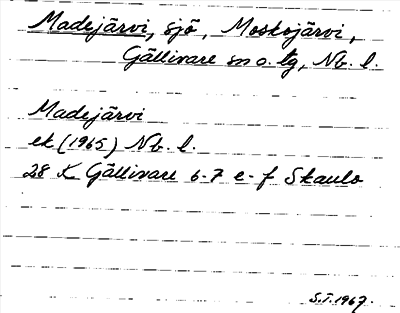 Madejärvi, sjö, Moskojärvi,
Gällivare sn o. tg, Nb. l.
Madejärvi
ek (1965) Nb. l.
28 K Gällivare 6-7 e-f Skaulo
S.I. 1967.